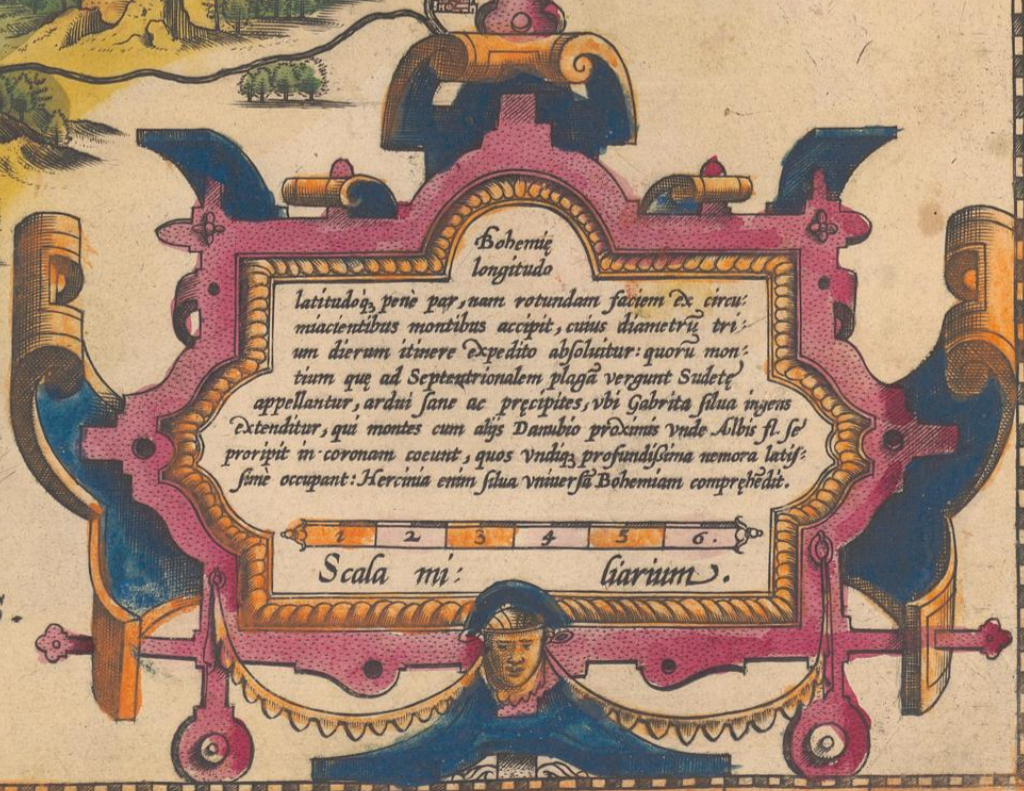 Bohemię
longitudo
latitudoq₃ penè par, nam rotundam faciem ex circu⸗
miacientibus montibus accipit, cuius diametrũ tri⸗
um dierum itinere expedito absoluitur: quorũ mon⸗
tium quę ad Septentrionalem plagã vergunt Sudetę
appellantur, ardui sane ac pręcipites, vbi Gabrita silua ingens
extenditur, qui montes cum alijs Danubio proximis vnde Albis fl. se
proripit in coronam coeunt, quos vndiq₃ profundissima nemora latis⸗
simè occupant: Hercinia enim silua vniuersã Bohemiam compręhẽdit.
1 2 3 4 5 6.
Scala mi: liarium.